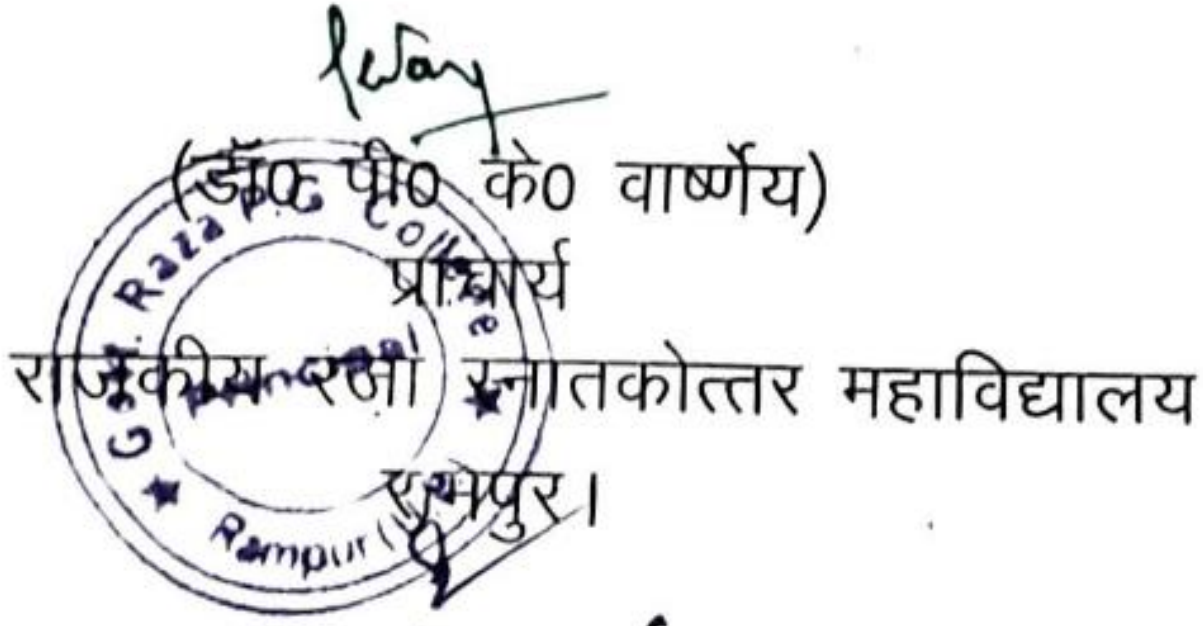 (डॉ0 पी0 के0 वार्ष्णेय)
प्राचार्य
राजकीय रजा स्नातकोत्तर महाविद्यालय
रामपुर।
Govt. Raza P.G College
Principal
Rampur